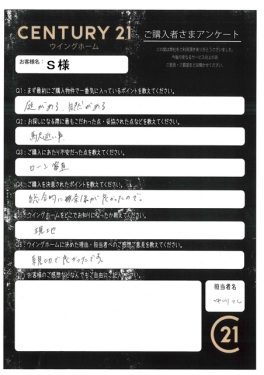 CENTURY 21
ウイングホーム
ご購入者さまアンケート
お客様名:
S様
Q1:まず最初にご購入物件で一番気に入っているポイントを教えてください。
庭がある、自然がある
Q2:お探しになる際に最もこだわった点・妥協された点などを教えてください。
Q3:ご購入にあたり不安だった点を教えてください。
ローン審査
Q4:ご購入を決意されたポイントを教えてください。
総合的に
Q5:ウイングホームをどこでお知りになったか教えてください。
現地
Q6:ウイングホームに決めた理由・担当者へのご感想ご意見を教えてください。
親切で良かったです。
お客様のご感想などなんでもご自由に
担当者名
C21